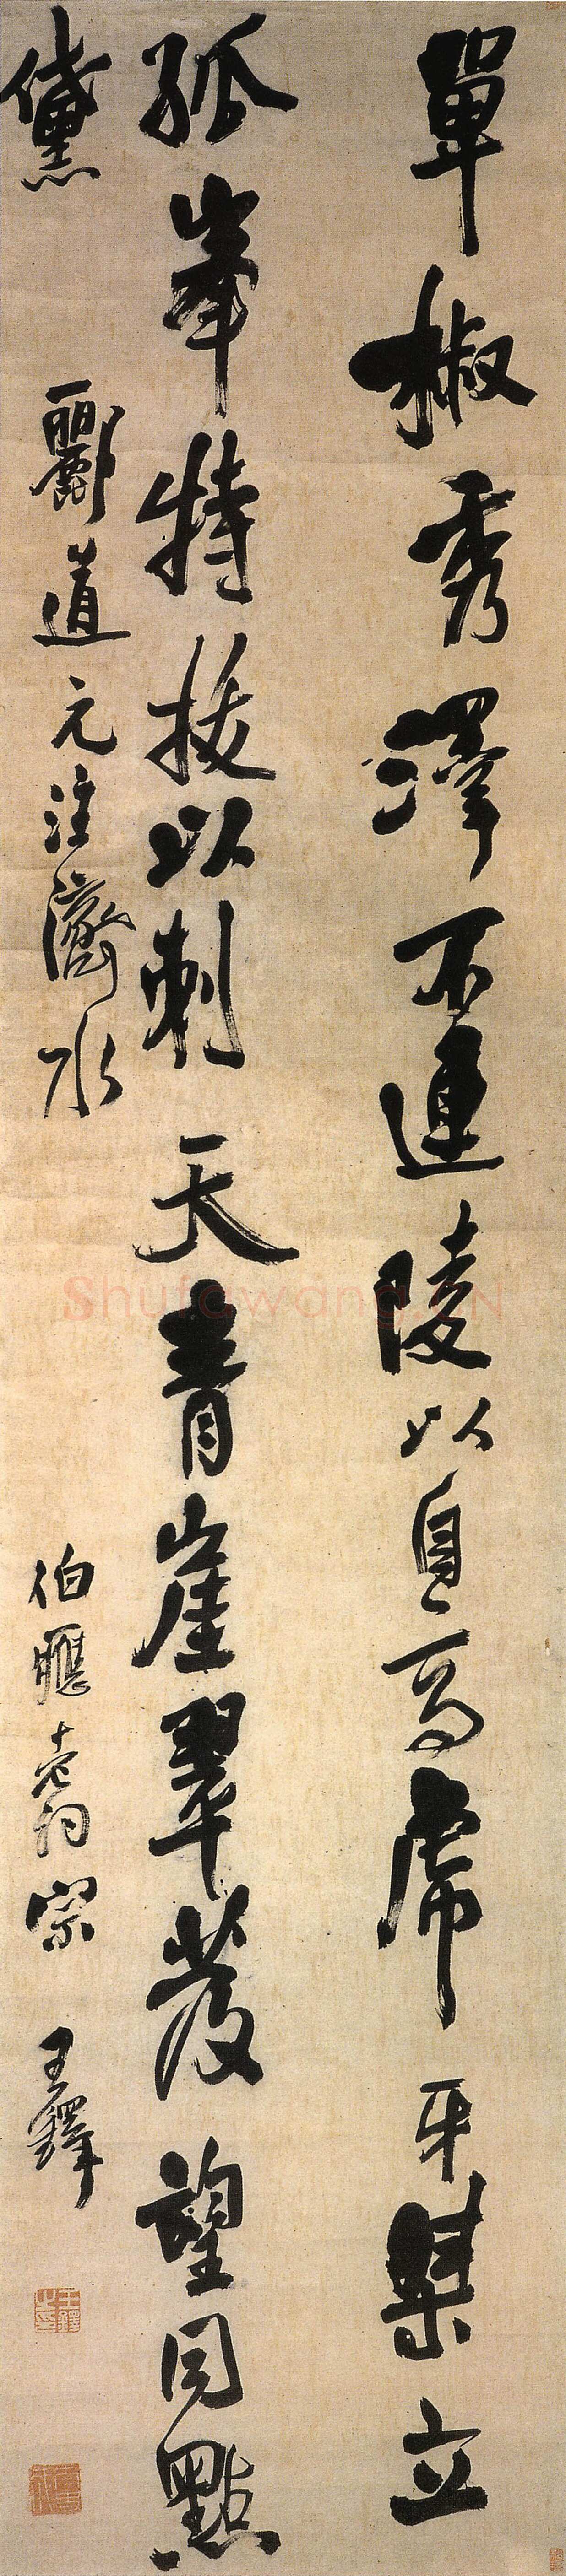 單椒秀澤不連陵以自高虎牙桀立
孤峯特拔以刺天青崖翠發望同點
黛 酈道元注濟水 伯應老詞宗 王鐸
王鐸之印
Shufawang.CN